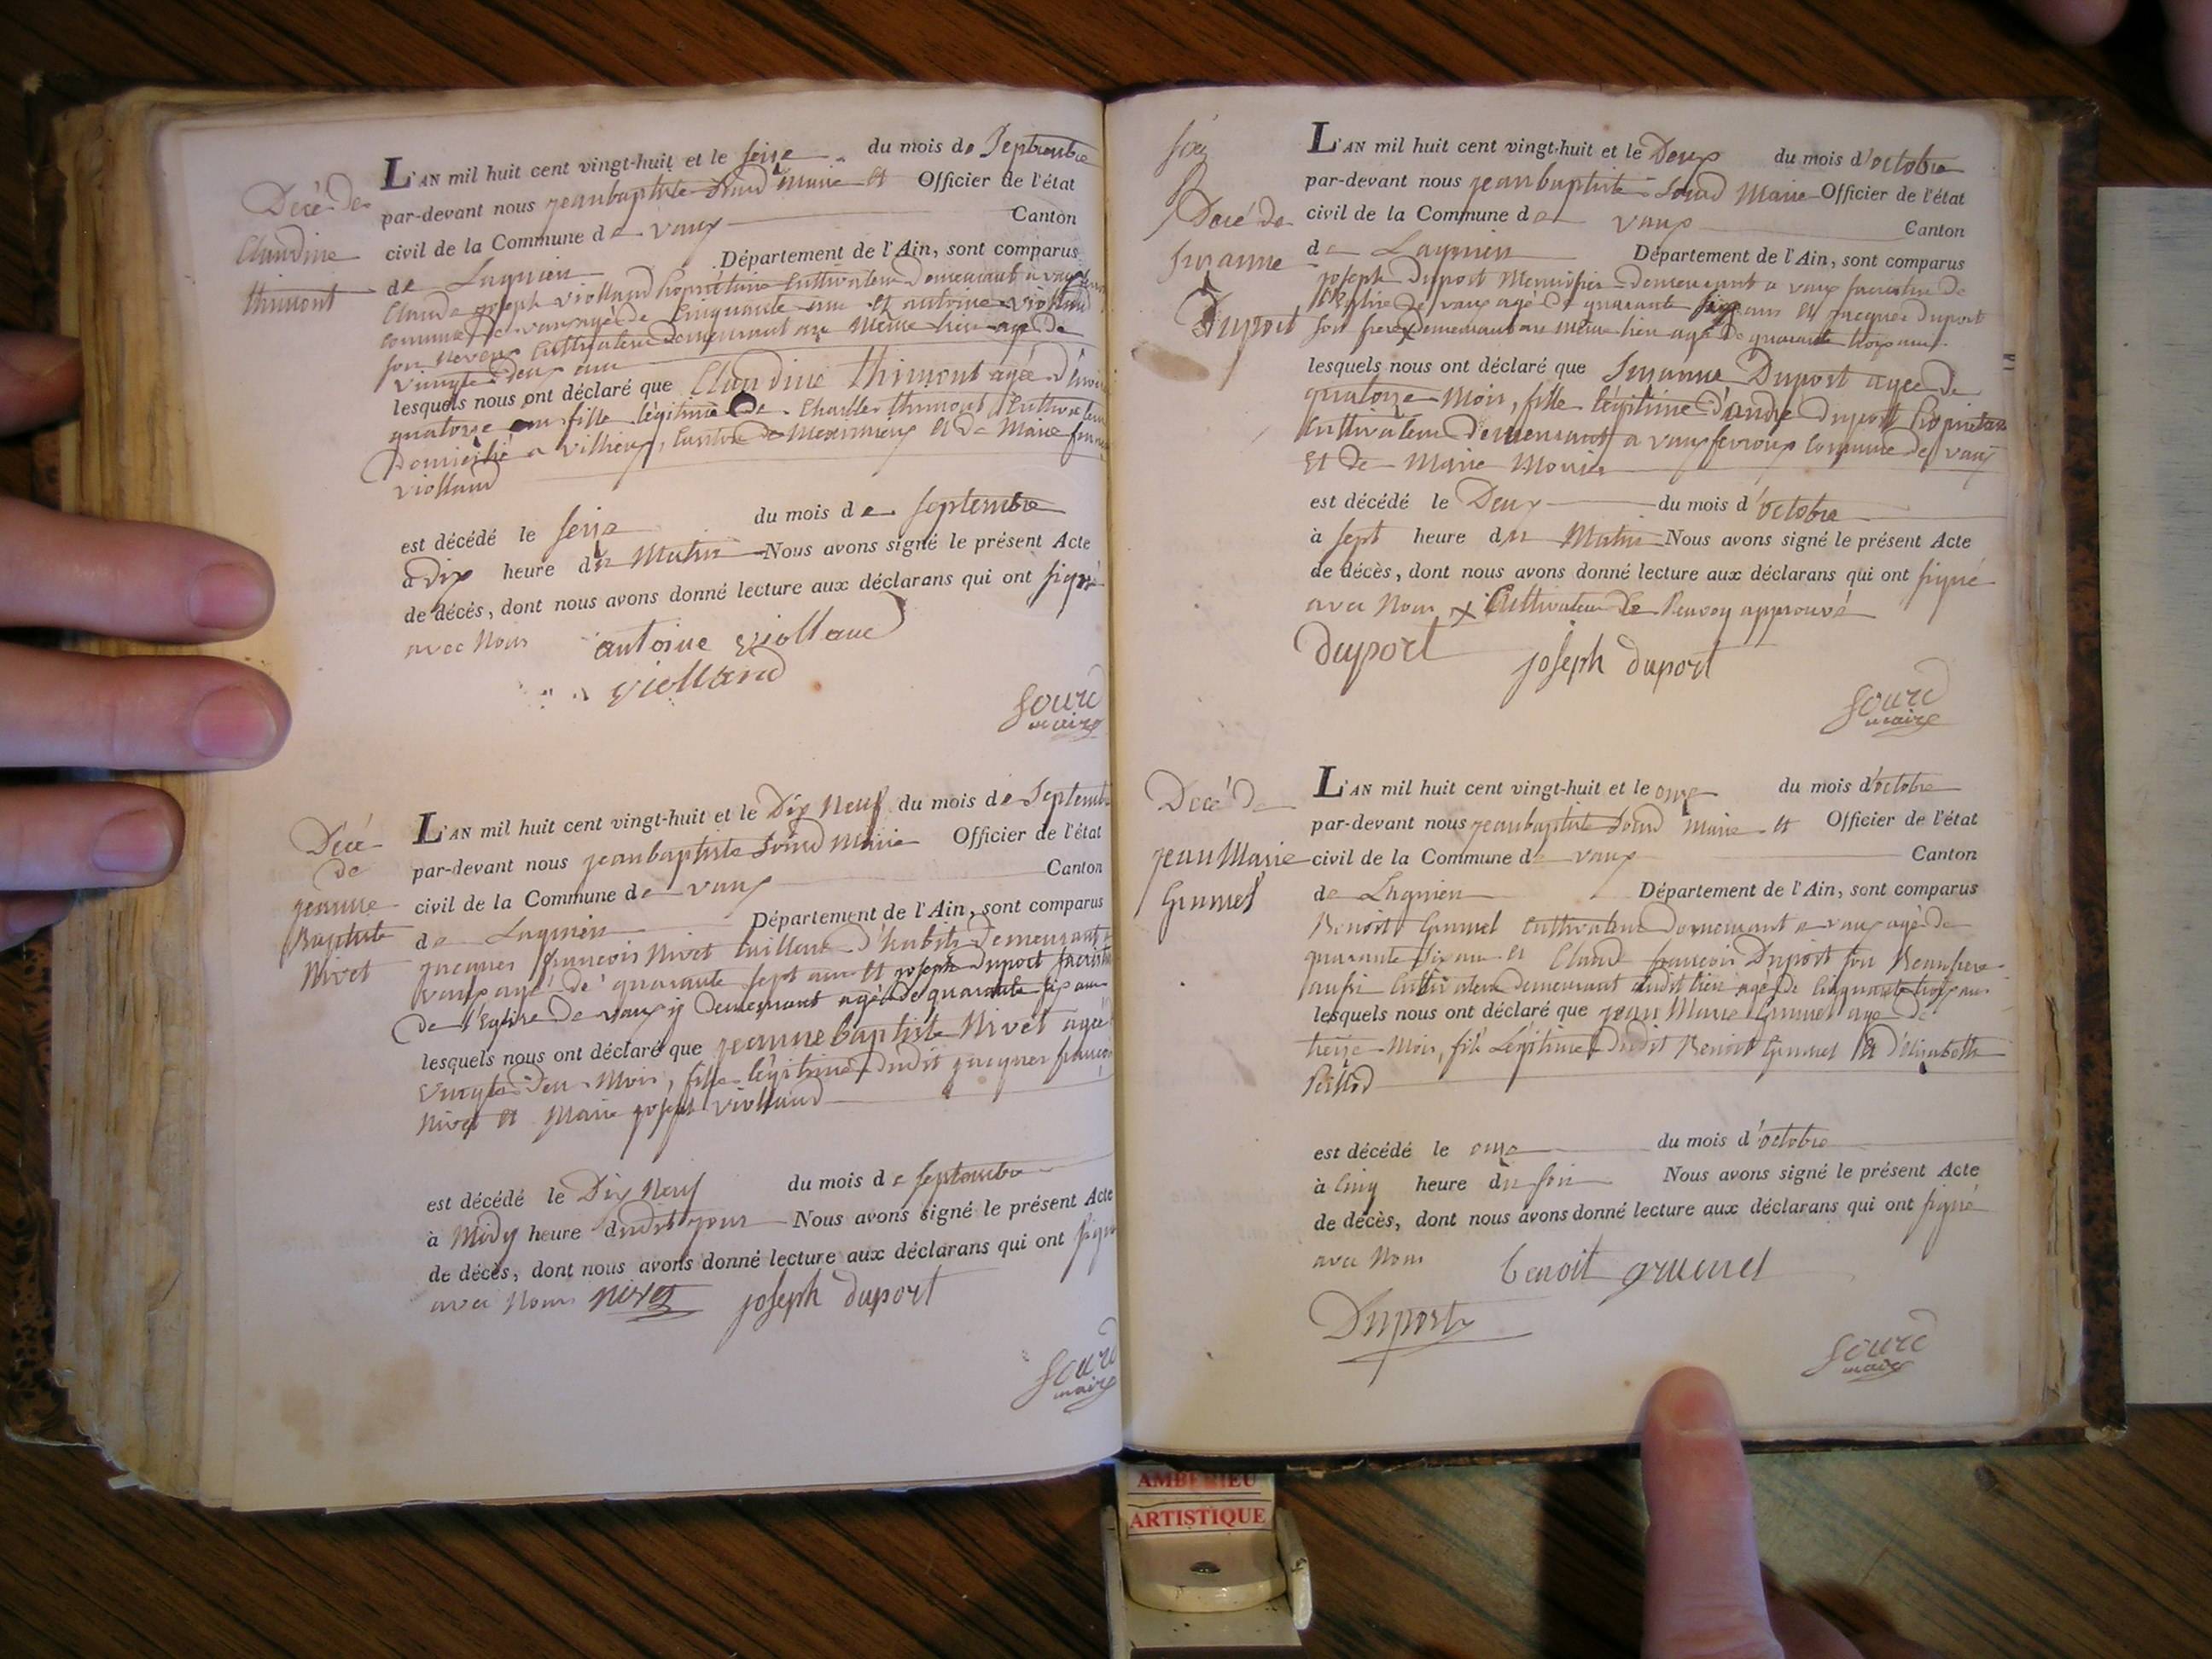 Décé de
Claudine
thimont
L'AN mil huit cent vingt-huit et le seize du mois de Septembre
par-devant nous jeanbaptiste Sourd Maire et Officier de l'état
civil de la Commune de vaux Canton
de Lagnieu Département de l'Ain, sont comparus
Claude joseph Viollaud Propriétaire Cultivateur Demeurant a vaux
commune de vaux agé de Cinquante un et antoine Viollaud
son neveux Cultivateur Demeurant au Même lieu agé de
vingte deux ans
lesquels nous ont déclaré que Claudine thimont agée d'
quatorze ans fille légitime de Charller thimont Cultivateur
Domicilié a Villieux, Canton de Meximieux et de Marie
viollaud
est décédé le seize du mois de septembre
a Dix heure du Matin Nous avons signé le présent Acte
de décès, dont nous avons donné lecture aux déclarans qui ont signé
avec Nous antoine viollaud
violland
Sourd
maire
Décé
de
jeanne
Baptiste
Nivet
L'AN mil huit cent vingt-huit et le Dix Neuf du mois de Septemb
par-devant nous jeanbaptiste Sourd Maire Officier de l'état
civil de la Commune de vaux Canton
de Lagnieu Département de l'Ain, sont comparus
jacques françois Nivet tailleur d'habits Demeurant a
vaux agé de quarante sept ans et joseph duport sacristin
de l'Eglise de vaux y Demeurant agé de quarante six ans
lesquels nous ont déclaré que jeanne baptiste Nivet agée
vingte Deux Mois, fille légitime dudit jacques françois
Nivet et Marie joseph viollaud
est décédé le Dix Neuf du mois de septembre
à Midy heure dudit jour Nous avons signé le présent Acte
de décès, dont nous avons donné lecture aux déclarans qui ont signé
avec Nous nivet joseph duport
Sourd
maire
Décé de
suzanne
Duport
L'AN mil huit cent vingt-huit et le Deux du mois d'octobre
par-devant nous jeanbaptiste Sourd Maire Officier de l'état
civil de la Commune de vaux Canton
de Lagnieu Département de l'Ain, sont comparus
joseph Duport Menuisier demeurant a vaux sacristin de
l'Eglise de vaux agé de quarante six ans et jacques duport
son frere x demeurant au même lieu agé de quarante trois ans
lesquels nous ont déclaré que Suzanne Duport agée de
quatorze Mois, fille légitime d'andré duport Propriétaire
Cultivateur Demeurant a vaux fevroux Commune de vaux
Et de Marie Monier
est décédé le Deux du mois d'octobre
à sept heure du Matin Nous avons signé le présent Acte
de décès, dont nous avons donné lecture aux déclarans qui ont signé
avec Nous x Cultivateur le Renvoy approuvé
duport joseph duport
Sourd
maire
Décé de
jean Marie
Grumel
L'AN mil huit cent vingt-huit et le onze du mois d'octobre
par-devant nous jeanbaptiste Sourd Maire et Officier de l'état
civil de la Commune de vaux Canton
de Lagnieu Département de l'Ain, sont comparus
Benoit Grumel Cultivateur Demeurant a vaux agé de
quarante six ans et Claude françois Duport son Beaufrere
aussi Cultivateur demeurant audit lieu agé de Cinquante trois ans
lesquels nous ont déclaré que jean Marie Grumel agé de
treize Mois, fils Légitime dudit Benoit Grumel et d'élisabeth
Peillod
est décédé le onze du mois d'octobre
à Cinq heure du soir Nous avons signé le présent Acte
de décès, dont nous avons donné lecture aux déclarans qui ont signé
avec Nous benoit grumel
Duport
Sourd
maire
AMBERIEU
ARTISTIQUE